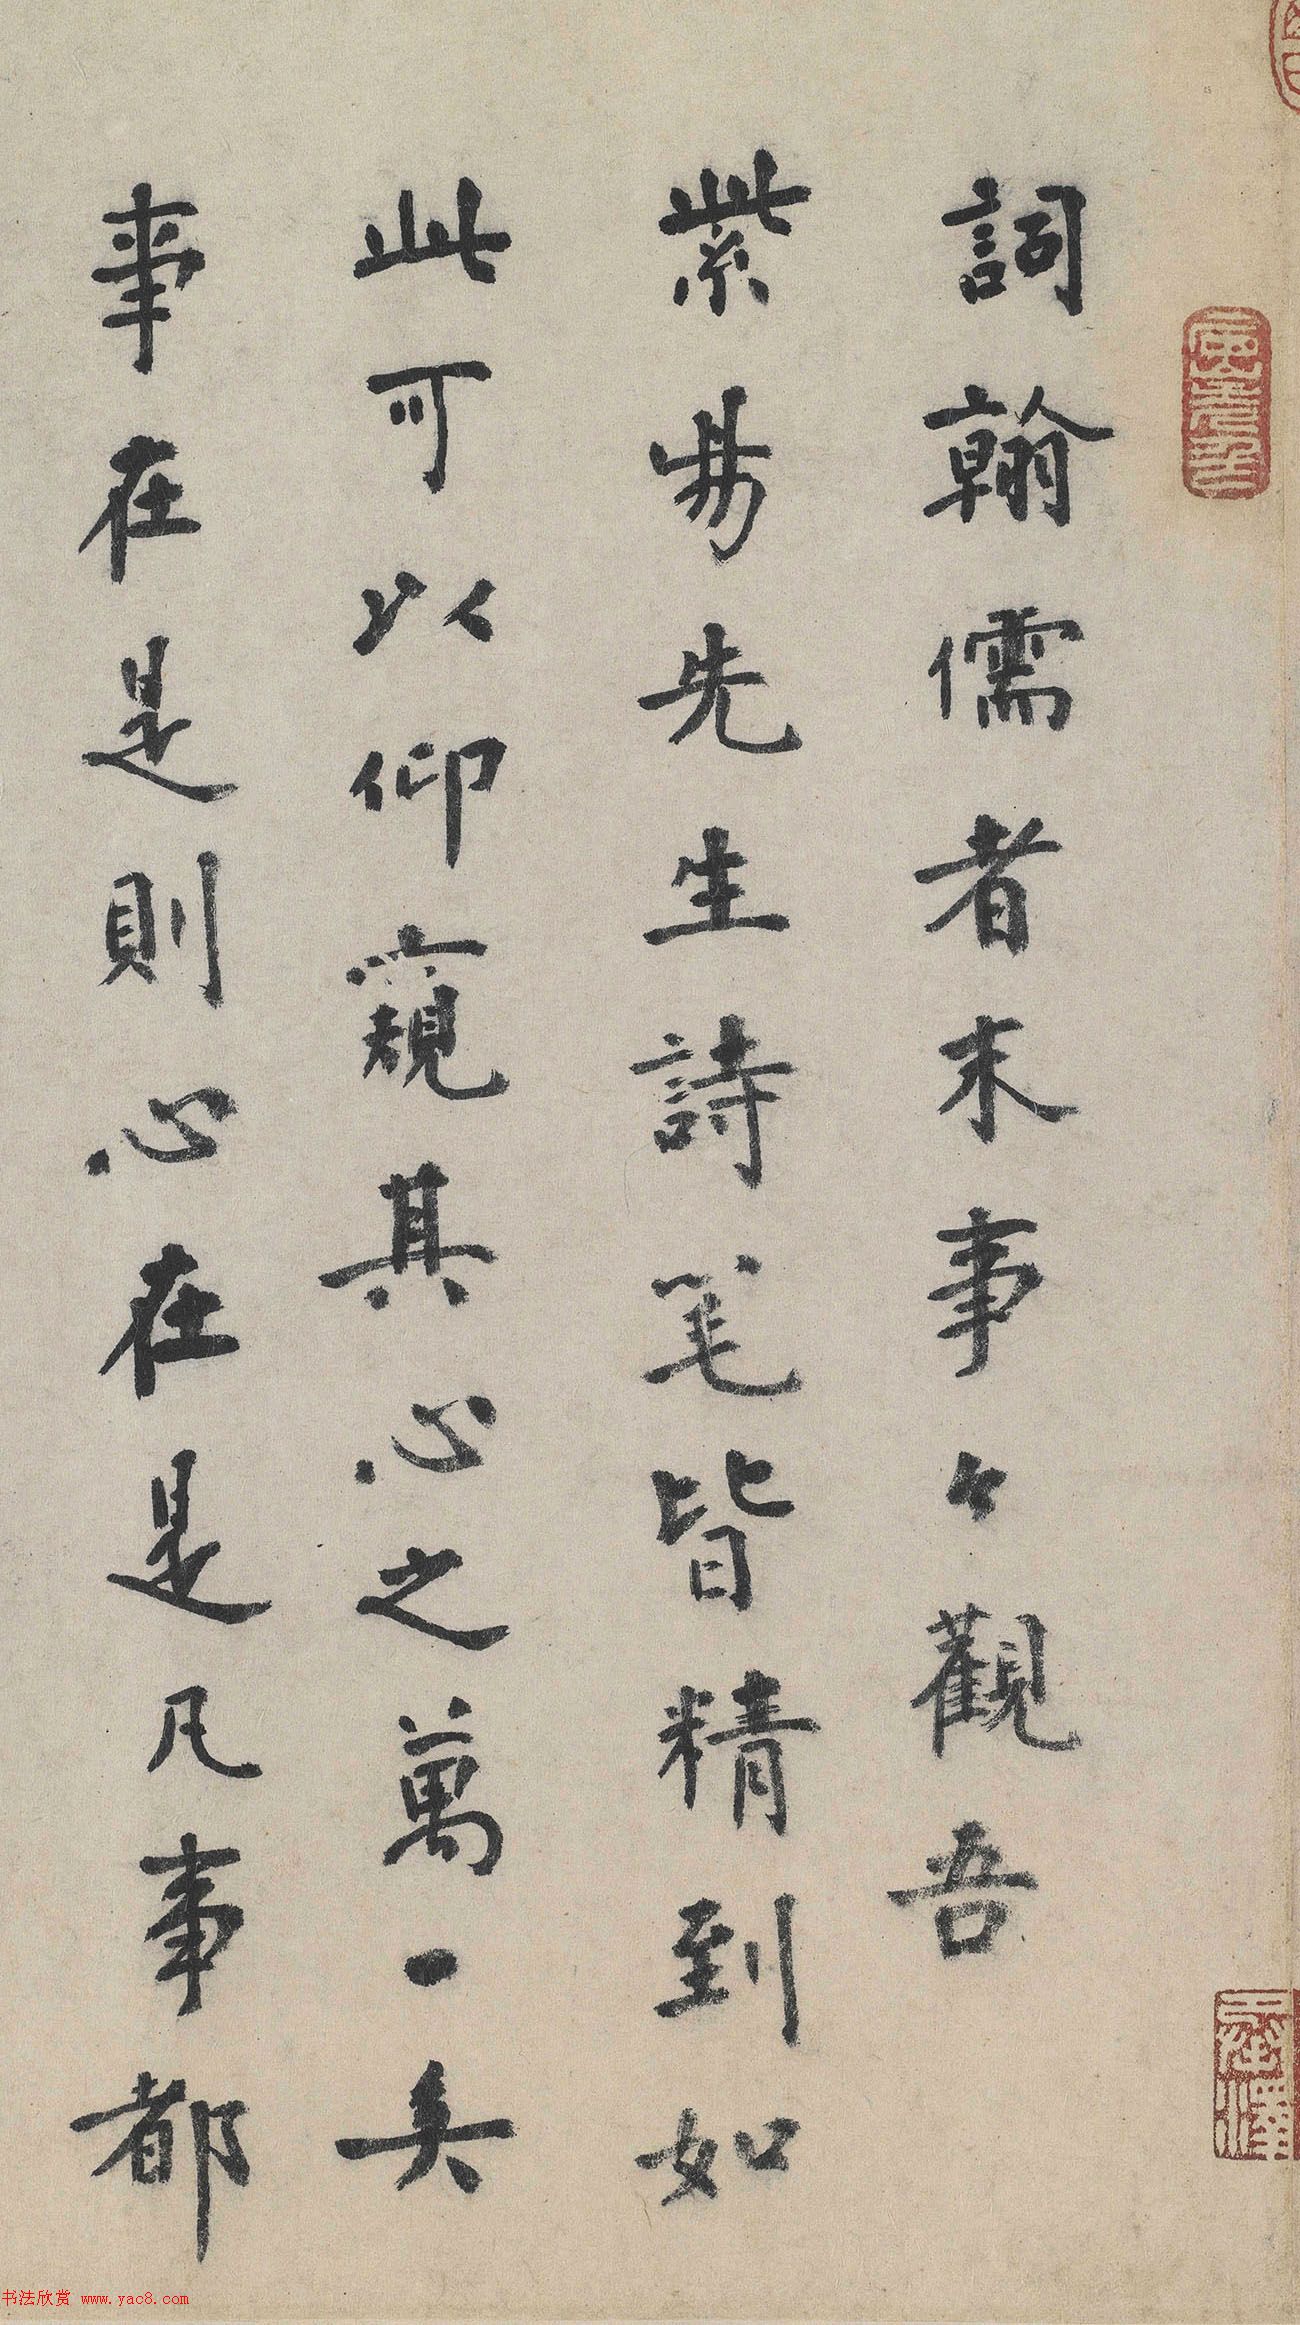 詞翰儒者末事々觀吾
紫陽先生詩笔皆精到如
此可以仰窺其心之萬一矣
事在是則心在是凡事都
书法欣赏 www.yac8.com